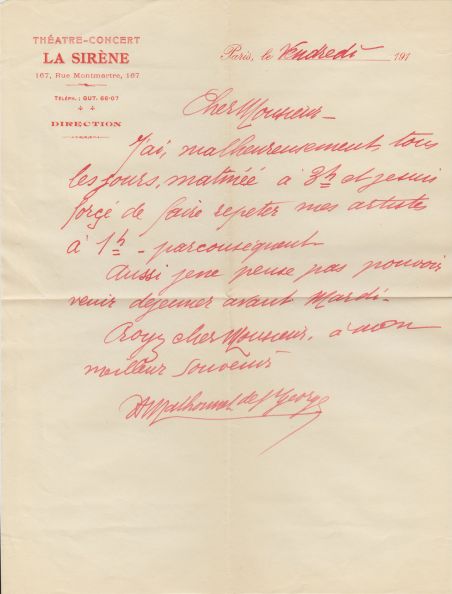 THÉATRE-CONCERT
LA SIRÈNE
167, Rue Montmartre, 167
TÉLÉPH. : GUT. 66-07
DIRECTION
Paris, le Vendredi 191
Cher Monsieur -
J'ai, malheureusement, tous
les jours, matinée à 3h et je suis
forçé de faire repeter mes artiste
à 1h - par conséquant
Aussi je ne pense pas pouvoir
venir déjeuner avant Mardi -
Croyez cher Monsieur, à mon
meilleur souvenir
de St George